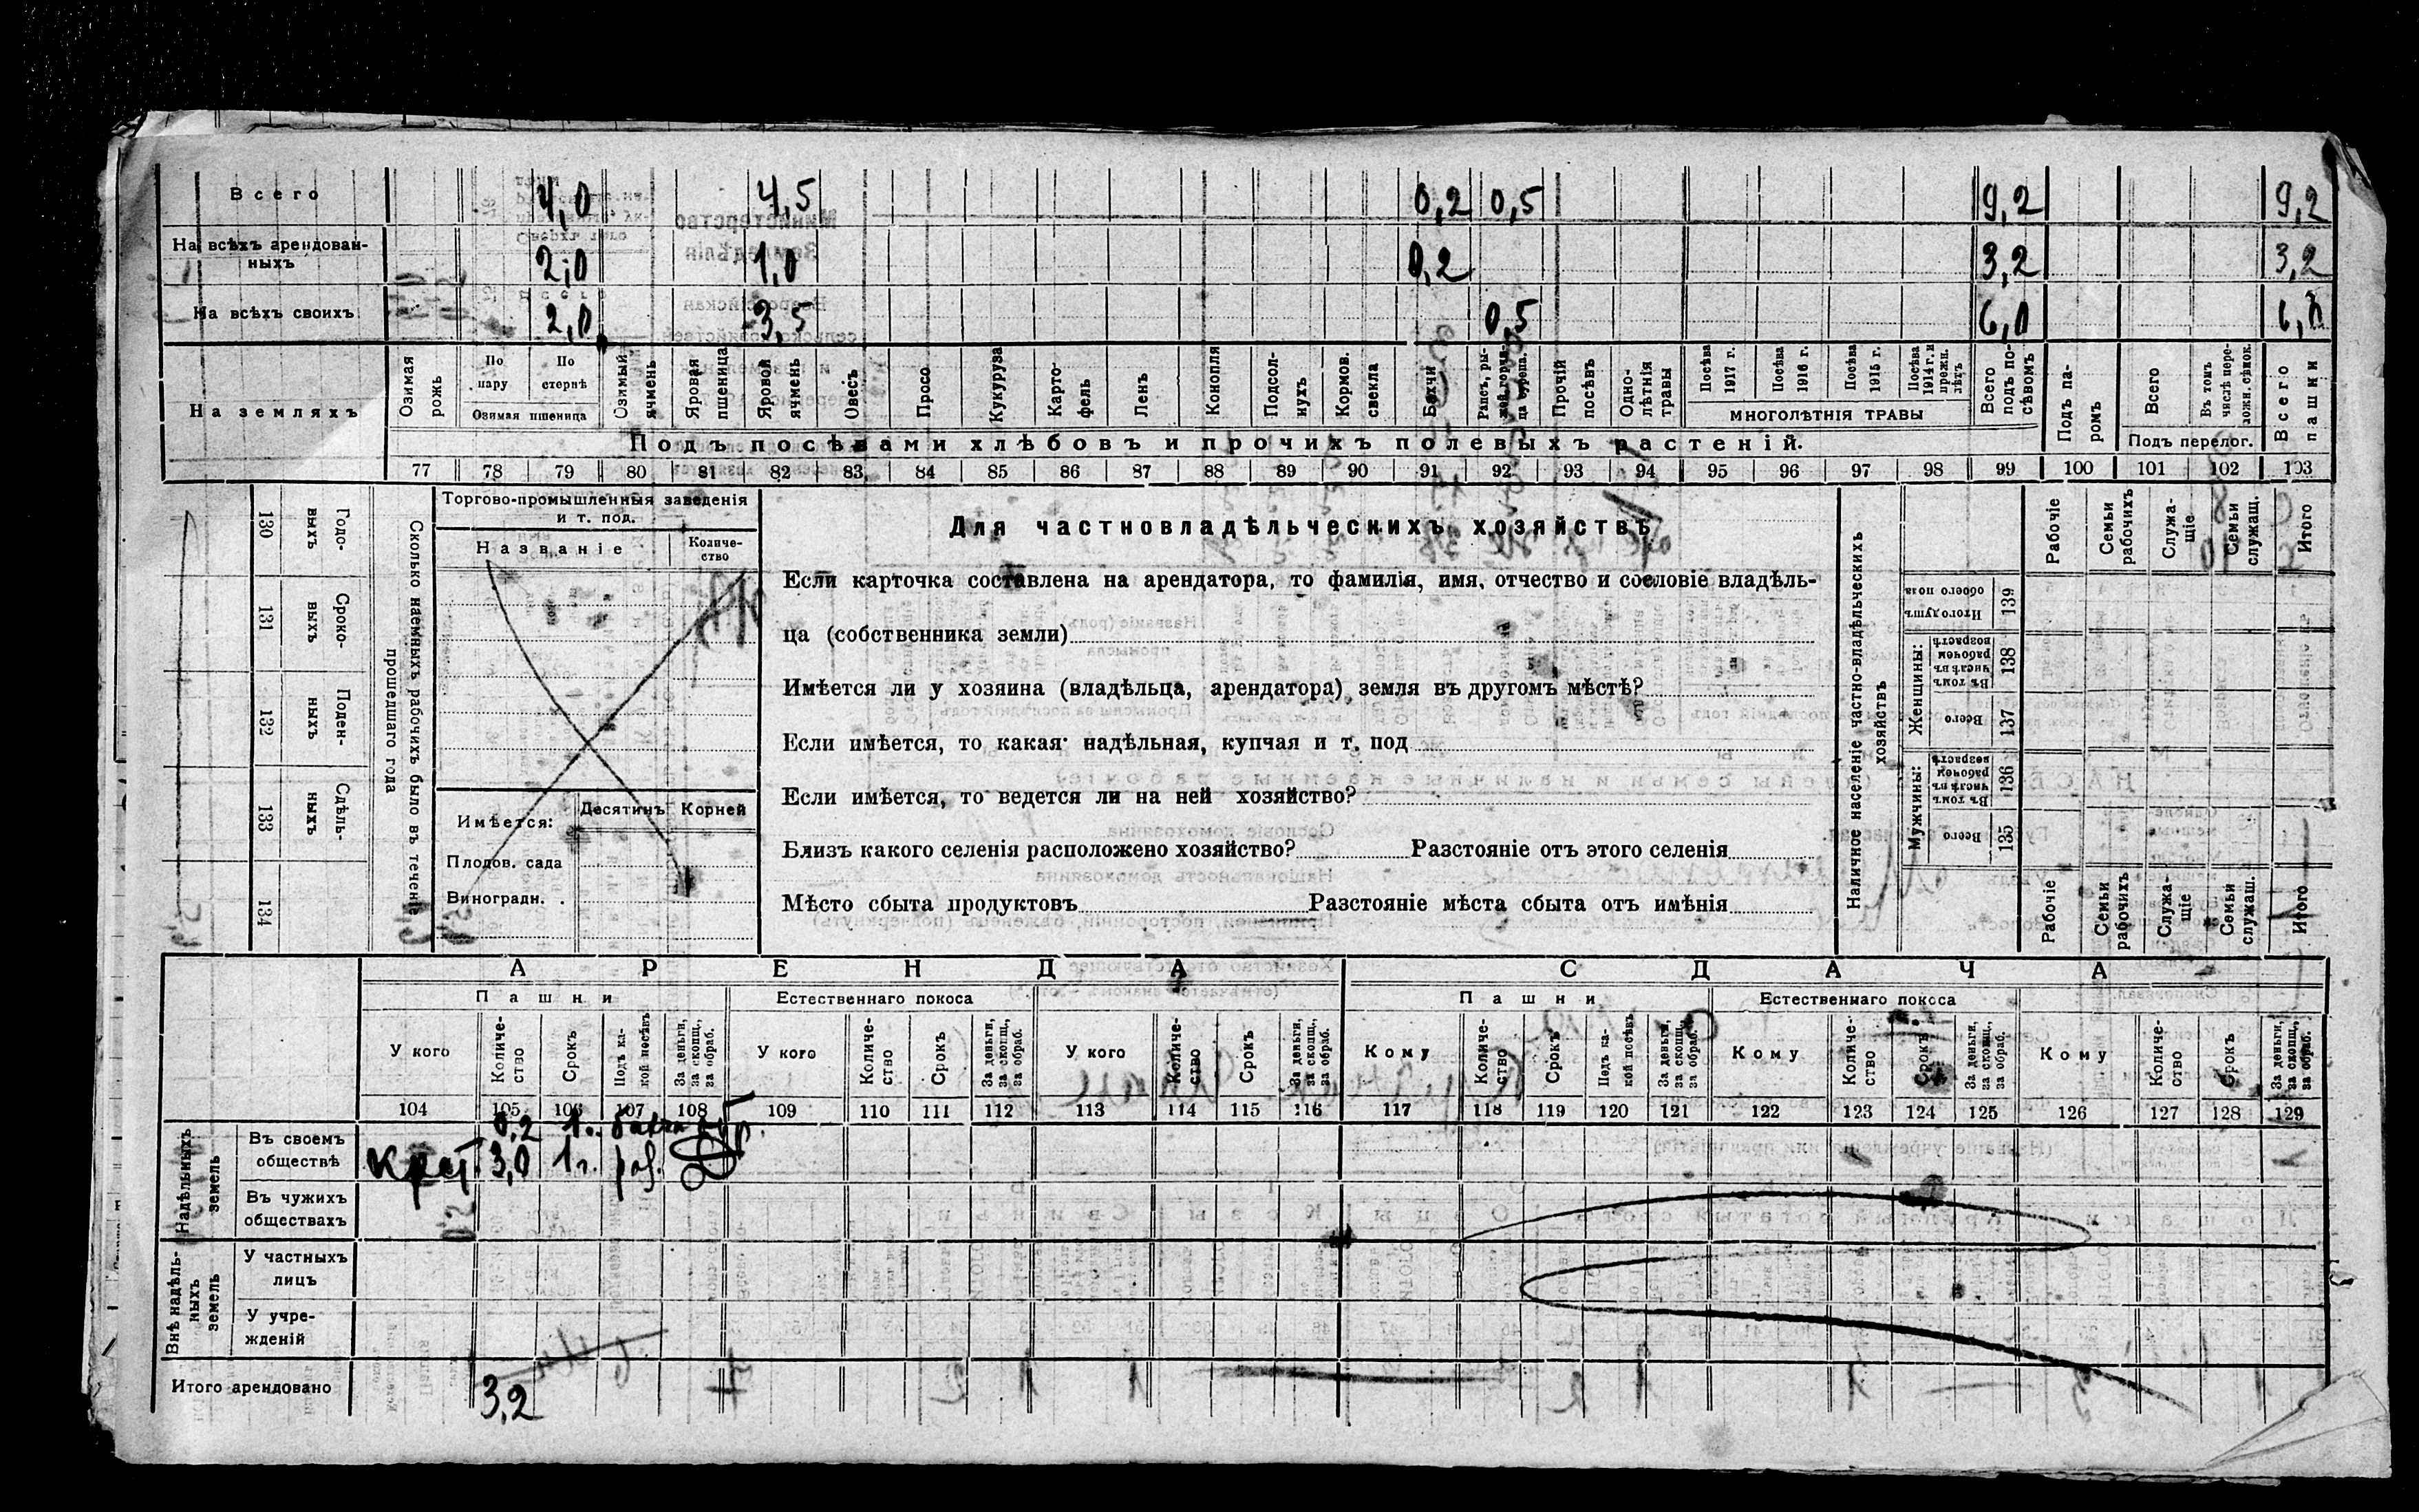 Всего 4,0 4,5 0,2 0,5 9,2 9,2
На всѣхъ арендован-
ныхъ 2,0 1,0 0,2 3,2 3,2
На всѣхъ своихъ 2,0 3,5 0,5 6,0 6,0
На земляхъ
Озимая рожь
По пару
По стернѣ
Озимая пшеница
Озимый ячмень
Яровая пшеница
Яровой ячмень
Овесъ
Просо
Кукуруза
Карто-
фель
Ленъ
Конопля
Подсол-
нухъ
Кормов.
свекла
Бахчи
Прочій
посѣвъ
Одно-
лѣтнія
травы
Посѣва 1917 г.
Посѣва 1916 г.
Посѣва 1915 г.
Посѣва 1914 г. и прежн. лѣтъ
МНОГОЛѢТНІЯ ТРАВЫ
Всего
подъ по-
сѣвомъ
Подъ па-
ромъ
Всего
Въ томъ
числѣ пере-
ложн. сѣнок.
Подъ перелог.
Всего
пашни
Подъ посѣвами хлѣбовъ и прочихъ полевыхъ растеній.
77 78 79 80 81 82 83 84 85 86 87 88 89 90 91 92 93 94 95 96 97 98 99 100 101 102 103
Годо-
выхъ
130
Сроко-
выхъ
131
Поден-
ныхъ
132
Сдѣль-
ныхъ
133
134
Сколько наемныхъ рабочихъ было въ теченіе
прошедшаго года
Торгово-промышленныя заведенія
и т. под.
Названіе
Количе-
ство
Имѣется:
Десятинъ
Корней
Плодов. сада
Виноградн.
Для частновладѣльческихъ хозяйствъ
Если карточка составлена на арендатора, то фамилія, имя, отчество и сословіе владѣль-
ца (собственника земли)
Имѣется ли у хозяина (владѣльца, арендатора) земля въ другомъ мѣстѣ?
Если имѣется, то какая: надѣльная, купчая и т. под
Если имѣется, то ведется ли на ней хозяйство?
Близъ какого селенія расположено хозяйство? Разстояніе отъ этого селенія
Мѣсто сбыта продуктовъ Разстояніе мѣста сбыта отъ имѣнія
Наличное населеніе частно-владѣльческихъ
хозяйствъ
Рабочіе
Семьи
рабочихъ
Служа-
щіе
Семьи
служащ.
Итого
Итого душъ
обоего пола
139
Женщины:
Въ томъ
числѣ въ
рабочемъ
возрастѣ
138
Всего
137
Мужчины:
Въ томъ
числѣ въ
рабочемъ
возрастѣ
136
Всего
135
Рабочіе
Семьи
рабочихъ
Служа-
щіе
Семьи
служащ.
Итого
АРЕНДА
СДАЧА
Пашни
Естественнаго покоса
Пашни
Естественнаго покоса
У кого
Количе-
ство
Срокъ
Подъ ка-
кой посѣвъ
За деньги,
за скопщ.,
за обраб.
У кого
Количе-
ство
Срокъ
За деньги,
за скопщ.,
за обраб.
У кого
Количе-
ство
Срокъ
За деньги,
за скопщ.,
за обраб.
Кому
Количе-
ство
Срокъ
Подъ ка-
кой посѣвъ
За деньги,
за скопщ.,
за обраб.
Кому
Количе-
ство
Срокъ
За деньги,
за скопщ.,
за обраб.
Кому
Количе-
ство
Срокъ
За деньги,
за скопщ.,
за обраб.
104 105 106 107 108 109 110 111 112 113 114 115 116 117 118 119 120 121 122 123 124 125 126 127 128 129
Надѣльныхъ
земель
0,2
Въ своемъ
обществѣ
3,0 1 г.
Въ чужихъ
обществахъ
Внѣ надѣль-
ныхъ
земель
У частныхъ
лицъ
У учре-
жденій
Итого арендовано 3,2